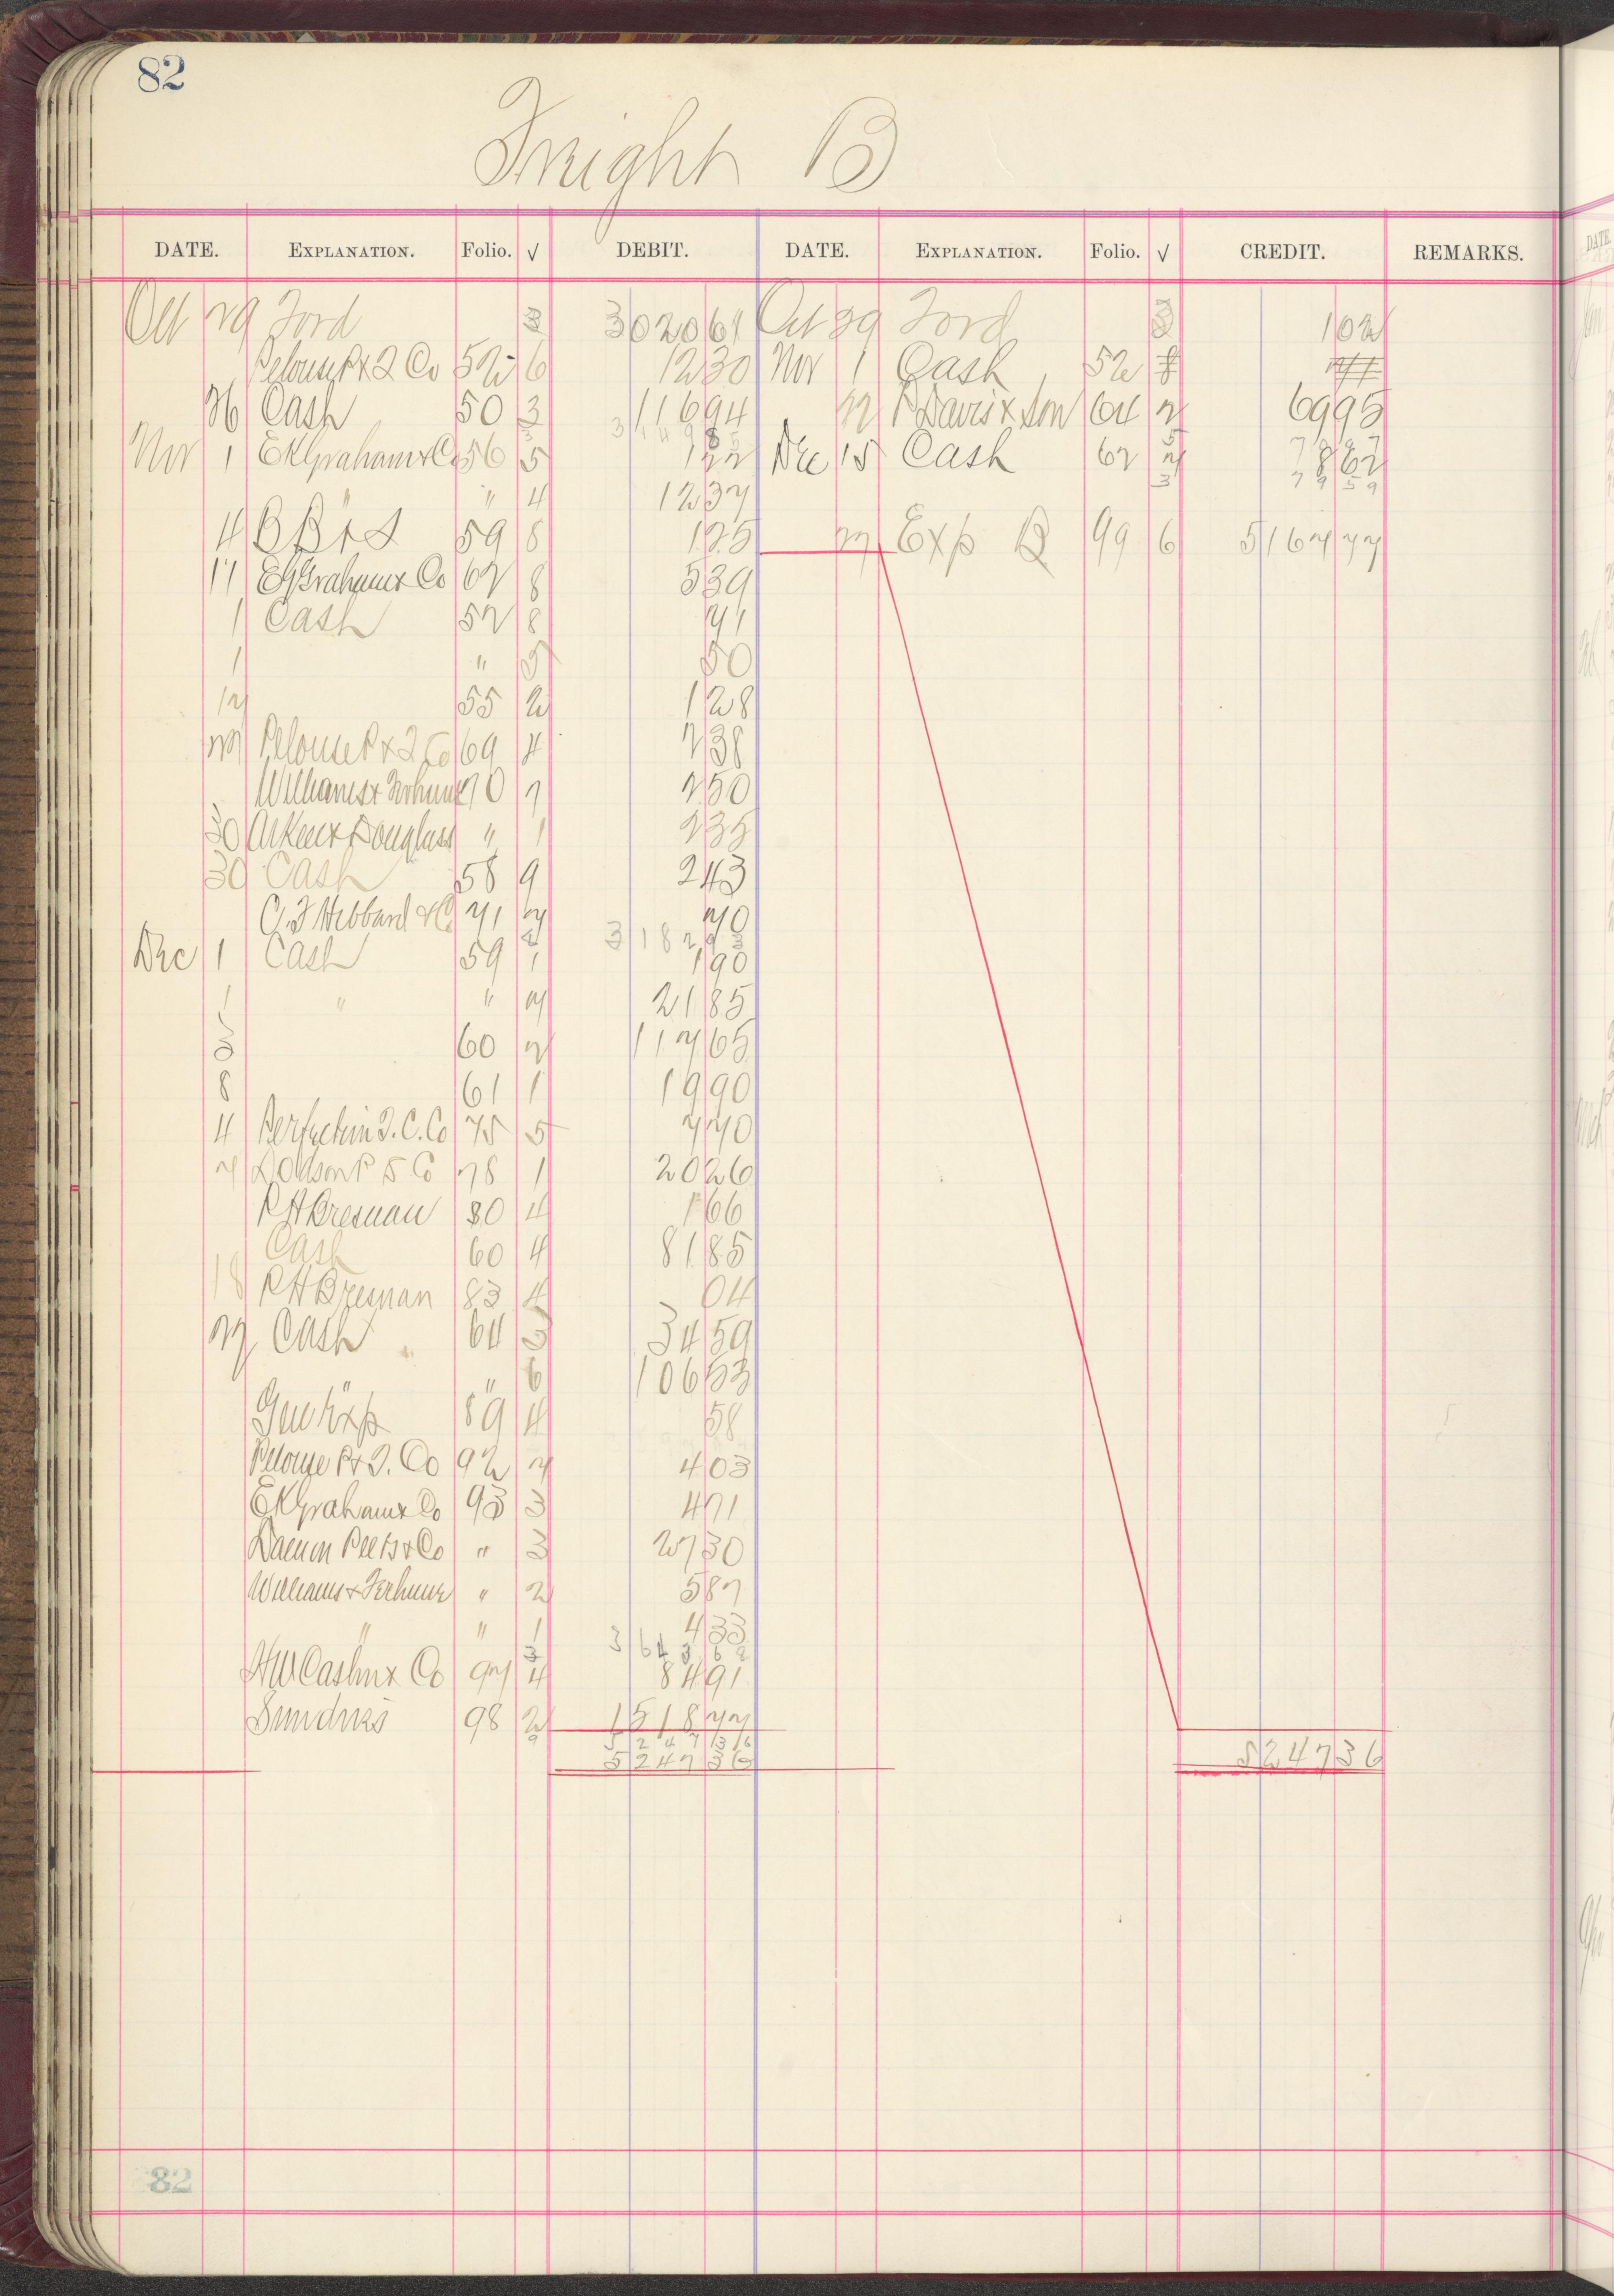 82
Freight B
DATE. EXPLANATION. Folio. √ DEBIT. DATE. EXPLANATION. Folio. √ CREDIT. REMARKS.
Oct 29 Ford 3 3020 61 Oct 29 Ford 3 1 02
Pelouse P & Co 52 6 12 30 Nov 1 Cash 52 8
26 Cash 50 3 116 94 22 P Davis & Son 64 2 69 95
Nov 1 E K Graham & Co 56 5 1 22 Dec 15 Cash 62 2 8 62
" " 4 12 37
4 B B & S 59 8 1 25 27 Exp B 99 6 5167 77
17 E K Graham & Co 67 8 5 39
1 Cash 52 8 71
1 " 50
12 55 2 1 28
Pelouse P & Co 69 4 2 38
Williams & Terhune 70 7 2 50
30 " 1 2 35
30 Cash 58 9 2 43
C. F Hibbard & Co 71 70
3182 93
Dec 1 Cash 59 1 1 90
1 " " 7 21 85
5 60 2 117 65
8 61 1 19 90
4 Perfection T. C. Co 75 5 7 70
7 Dodson P S Co 78 1 20 26
R H Bresnan 80 4 1 66
Cash 60 4 81 85
18 R H Bresnan 83 4 04
27 Cash 64 3 34 59
" " 6 106 53
Gen Exp 89 4 58
Pelouse P & T. Co 92 7 4 03
E K Graham & Co 93 3 4 71
" 3 27 30
Williams & Terhune " 2 5 87
" " 1 4 33
3643 68
H W Caslin & Co 97 4 84 91
Sundries 98 2 1518 77
5247 36
5247 36 5247 36
82